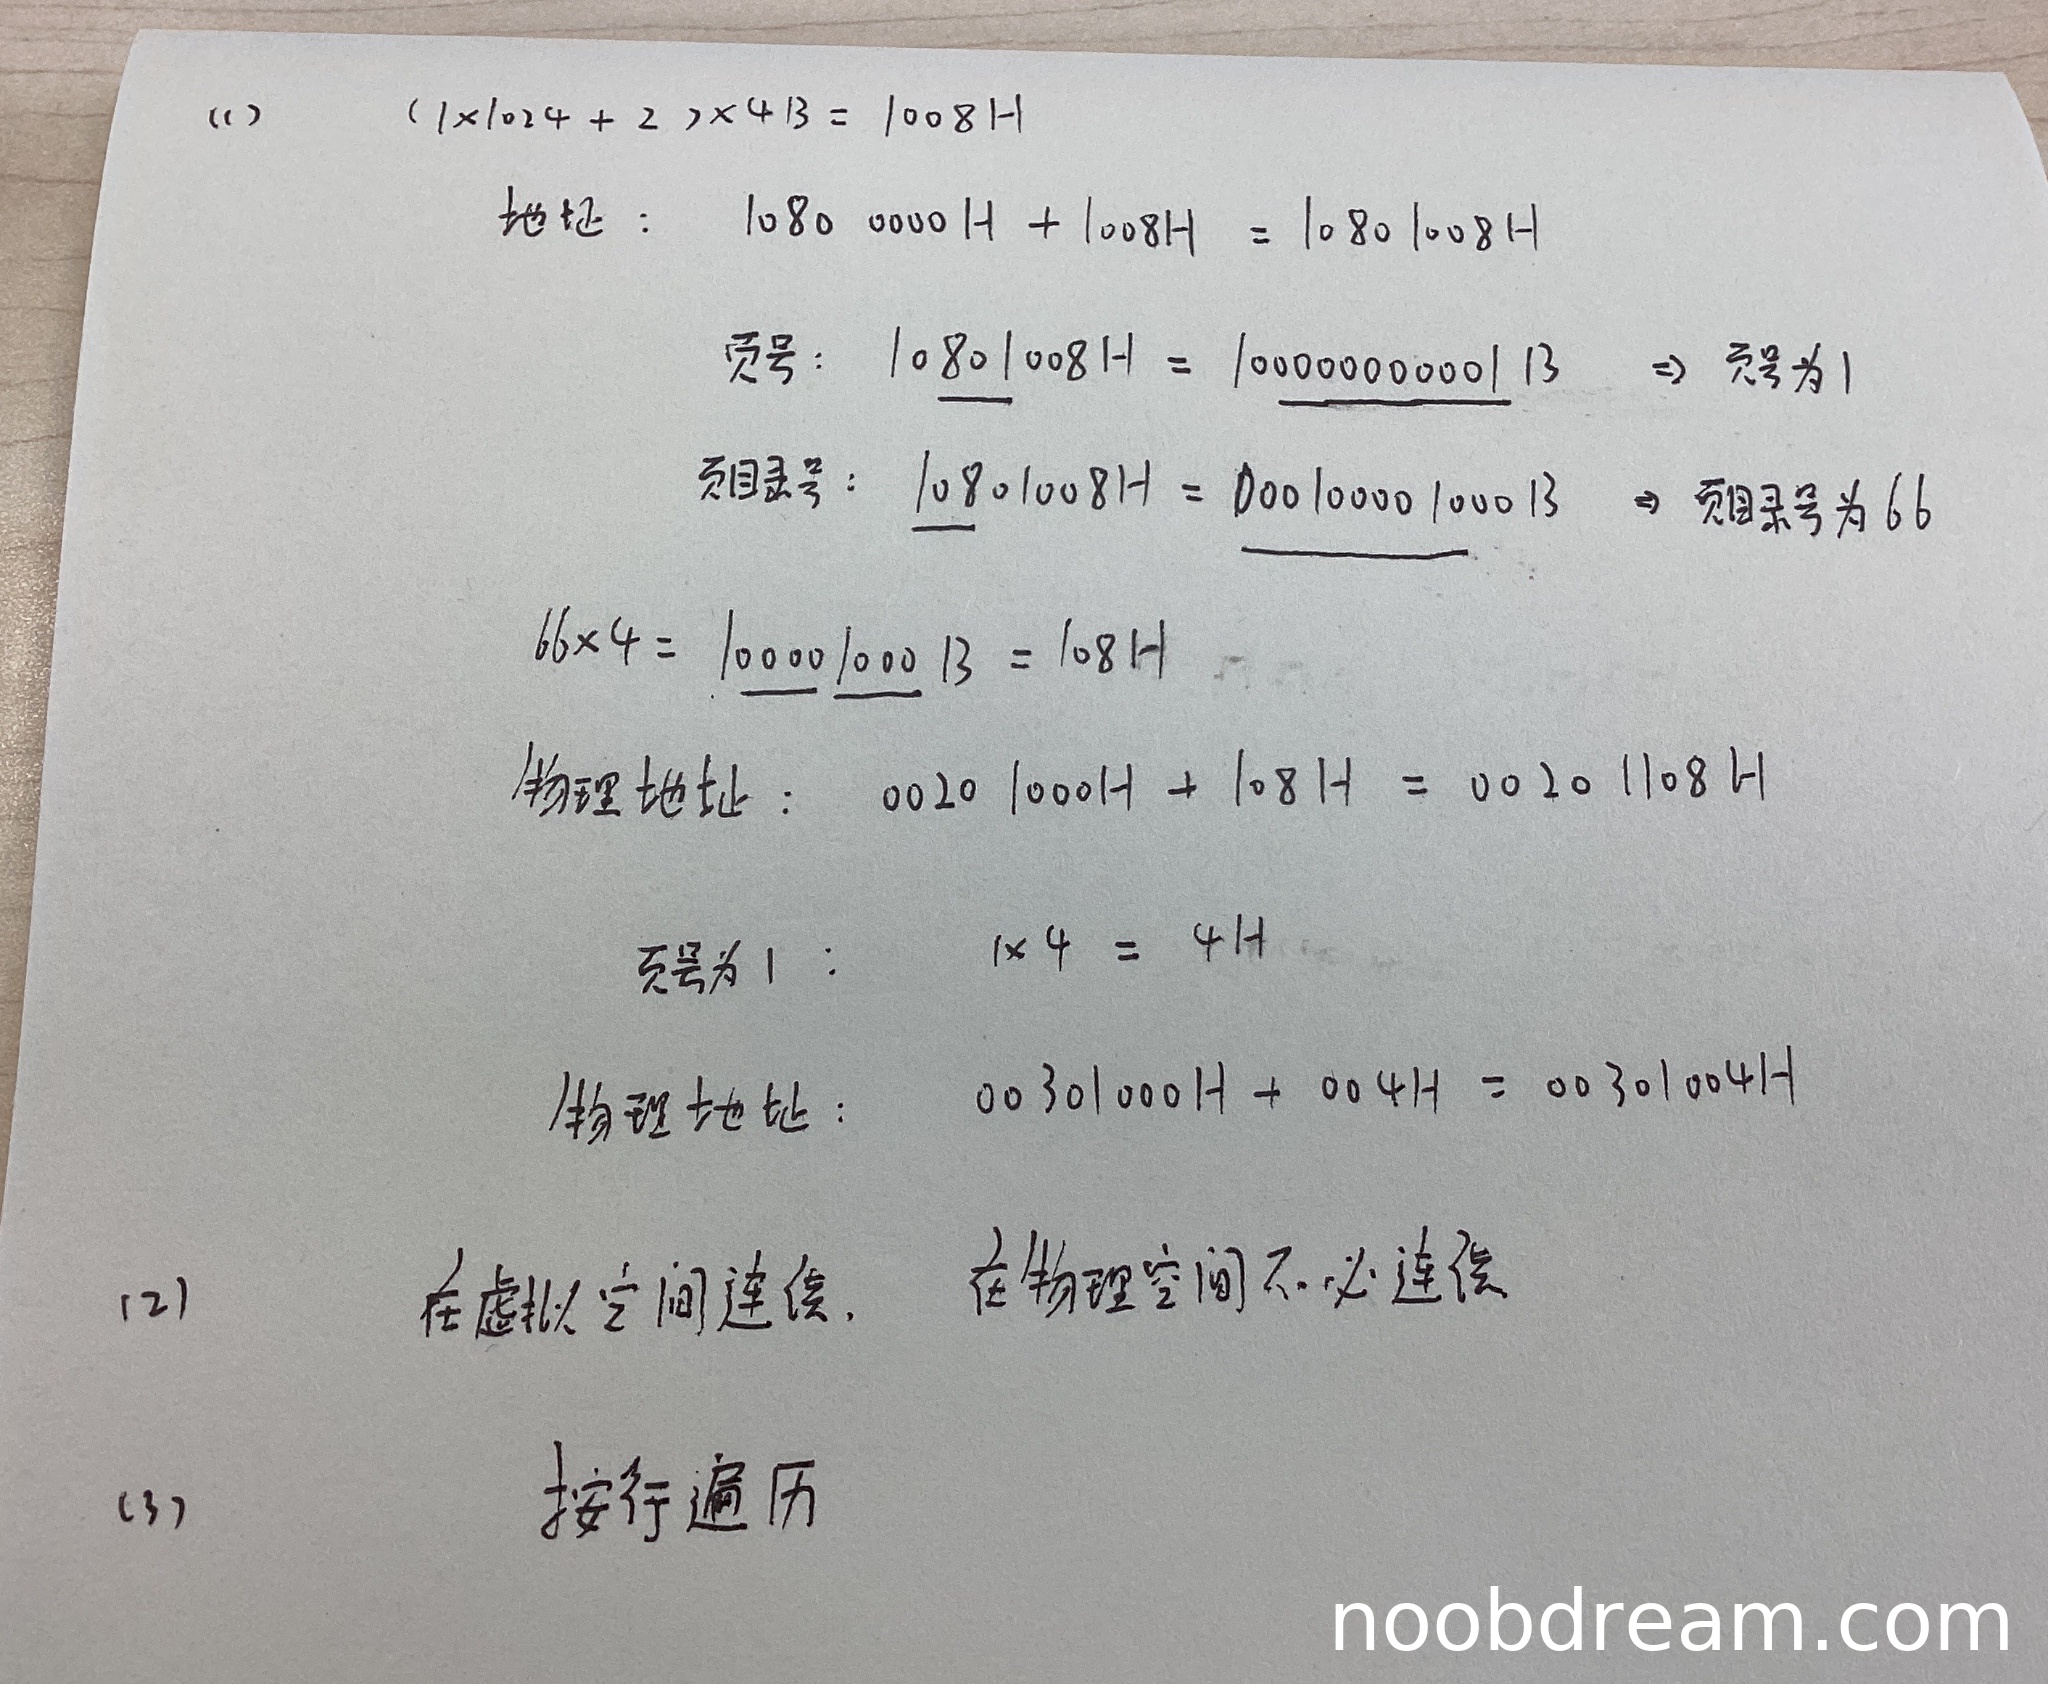 (1) (1×1024 + 2)×4B = 1008H
地址: 1080 0000H + 1008H = 1080 1008H
页号: 10801008H = 100000000001B ⇒ 页号为1
页目录号: 10801008H = 000100001000B ⇒ 页目录号为66
66×4 = 100001000B = 108H
物理地址: 0020 1000H + 108H = 0020 1108H
页号为1: 1×4 = 4H
物理地址: 00301000H + 004H = 00301004H
(2) 在虚拟空间连续. 在物理空间不必连续
(3) 按行遍历
noobdream.com